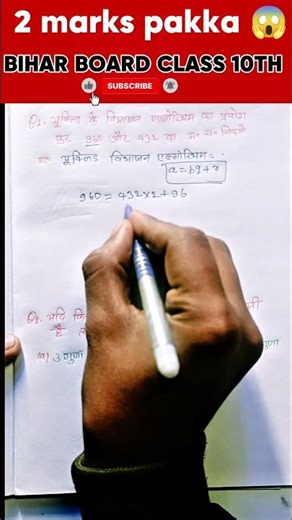 2 marks pakka 😱
BIHAR BOARD CLASS 10TH
SUBSCRIBE
Q1. यूक्लिड के विभाजन एल्गोरिथम का प्रयोग
कर 960 और 432 का म० स० निकालें
यूक्लिड विभाजन एल्गोरिथम :
a=bq+r
960 = 432×2+96
Q2. यदि
है
(a) 3 गुणा
गुणा